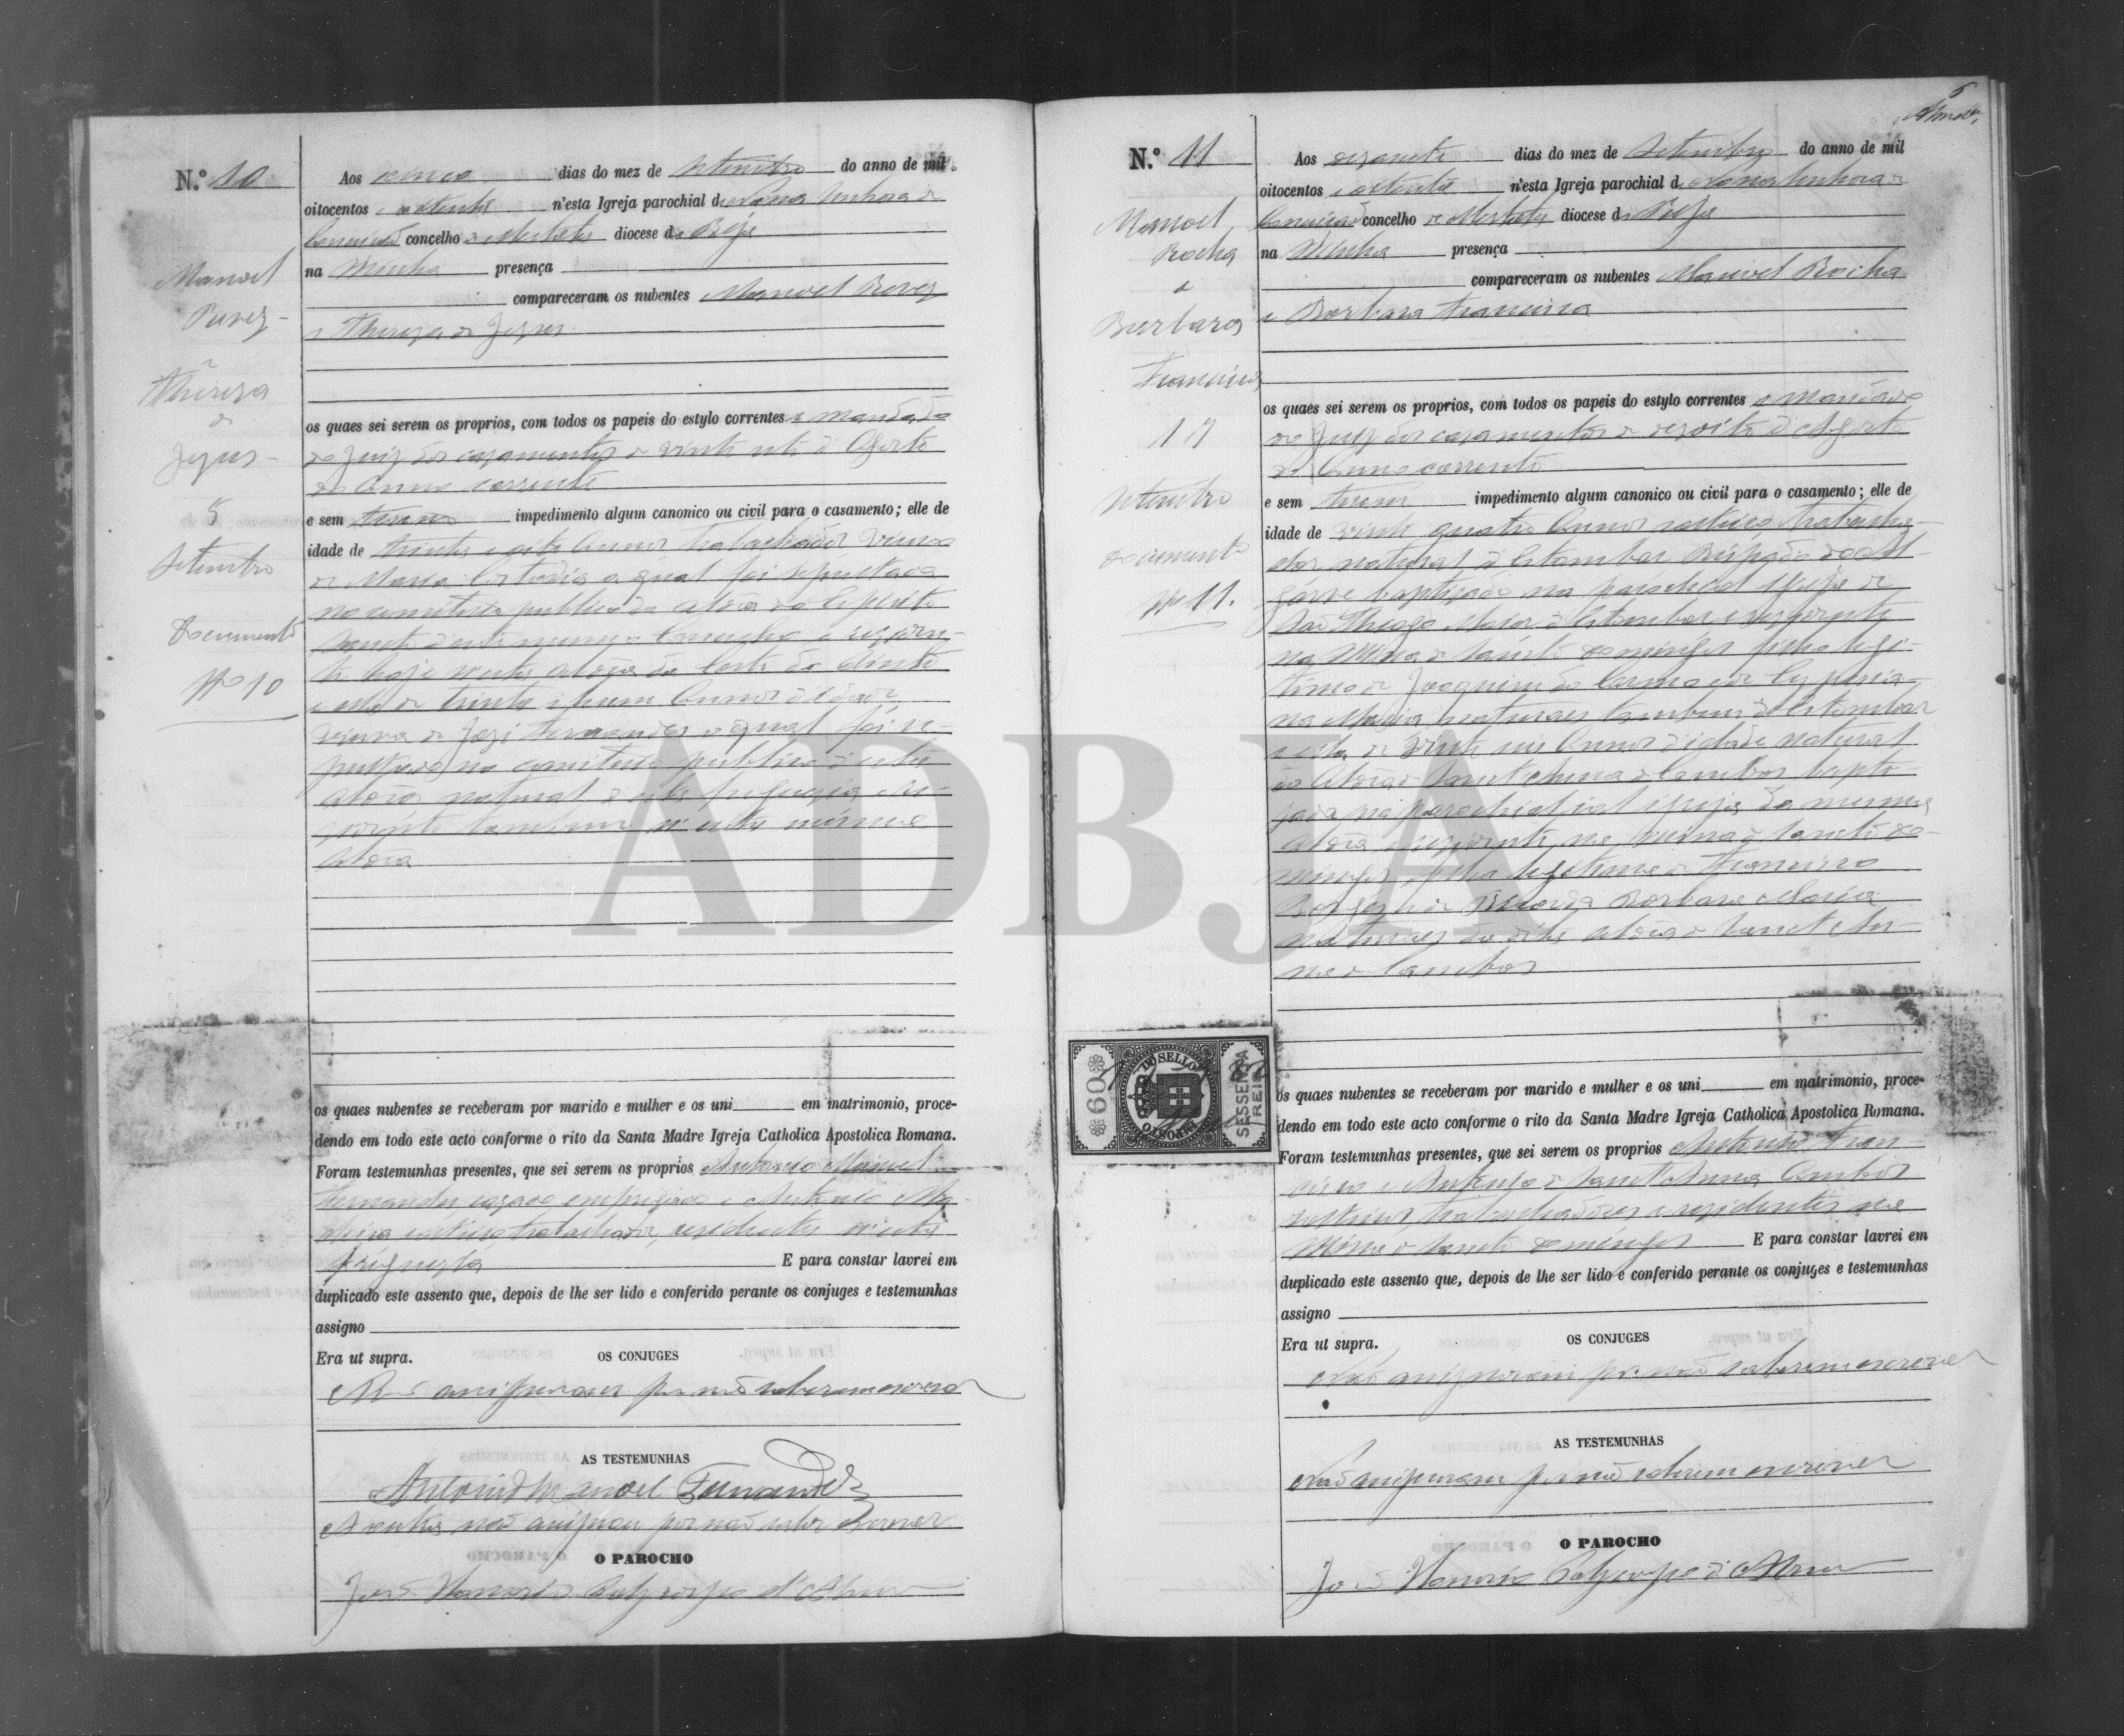 N.º 10
Aos cinco dias do mez de Setembro do anno de mil
oitocentos e oitenta n'esta Igreja parochial de Nossa Senhora da
Conceição concelho de Mertola diocese de Beja
na minha presença
compareceram os nubentes Manoel
e Thereza de Jezus
os quaes sei serem os proprios, com todos os papeis do estylo correntes e mandado
do Juiz dos cazamentos de vinte sete d'Agosto
do Anno corrente
e sem terem impedimento algum canonico ou civil para o casamento; elle de
idade de trinta e oito Annos trabalhador viuvo
de Maria Custodia a qual foi sepultada
no cemiterio publico da aldeia do Espirito
Santo d'este mesmo Concelho e rezidente
hoje nesta aldeia da Corte do Pinto
e ella de trinta e hum Annos d'idade
viuva de Jozé Fernandes o qual foi se-
pultado no cemiterio publico d'esta
aldeia natural d'esta freguezia e re-
zidente tambem n'esta mesma
aldeia
os quaes nubentes se receberam por marido e mulher e os uni em matrimonio, proce-
dendo em todo este acto conforme o rito da Santa Madre Igreja Catholica Apostolica Romana.
Foram testemunhas presentes, que sei serem os proprios Antonio Manoel
Fernandes cazado empregado e Antonio Ma-
solteiro trabalhador, residentes n'esta
freguezia E para constar lavrei em
duplicado este assento que, depois de lhe ser lido e conferido perante os conjuges e testemunhas
assigno
Era ut supra. OS CONJUGES
Não assignaram por não saberem escrever
AS TESTEMUNHAS
Antonio Manoel Fernandes
A outra não assignou por não saber escrever
O PAROCHO
João
Manoel
Thereza
de
Jezus
5
Setembro
Documento
Nº 10
N.º 11
Aos dezasete dias do mez de Setembro do anno de mil
oitocentos e oitenta n'esta Igreja parochial de Nossa Senhora da
Conceição concelho de Mertola diocese de Beja
na minha presença
compareceram os nubentes Manoel Rocha
e Barbara Francisca
os quaes sei serem os proprios, com todos os papeis do estylo correntes e mandado
do Juiz dos cazamentos de dezoito d'Agosto
do Anno corrente
e sem terem impedimento algum canonico ou civil para o casamento; elle de
idade de vinte quatro Annos solteiro trabalha-
dor natural d'Estombar Bispado do Al-
garve baptizado na parochial igreja de
São Thiago Maior d'Estombar e rezidente
na Mina de Sancto Domingos filho legi-
timo de Joaquim do Carmo e de
Maria naturaes tambem d'Estombar
e ella de vinte seis Annos d'idade natural
da Aldeia de Sanct'Anna de Cambas bapti-
zada na parochial igreja da mesma
aldeia e rezidente na mina de Sancto Do-
mingos filha legitima de Francisco
Borges e de Barbara Maria
naturaes da dita aldeia de Sanct'An-
na de Cambas
os quaes nubentes se receberam por marido e mulher e os uni em matrimonio, proce-
dendo em todo este acto conforme o rito da Santa Madre Igreja Catholica Apostolica Romana.
Foram testemunhas presentes, que sei serem os proprios Antonio Fran-
cisco e de Sanct'Anna Cambas
solteiros, trabalhadores e rezidentes na
Mina de Sancto Domingos E para constar lavrei em
duplicado este assento que, depois de lhe ser lido e conferido perante os conjuges e testemunhas
assigno
Era ut supra. OS CONJUGES
Não assignaram por não saberem escrever
AS TESTEMUNHAS
Não assignaram por não saberem escrever
O PAROCHO
João
Manoel
Rocha
e
Barbara
Francisca
17
Setembro
Documento
Nº 11.
60
DO SELLO
IMPOSTO
SESSENTA
REIS
ADBJA